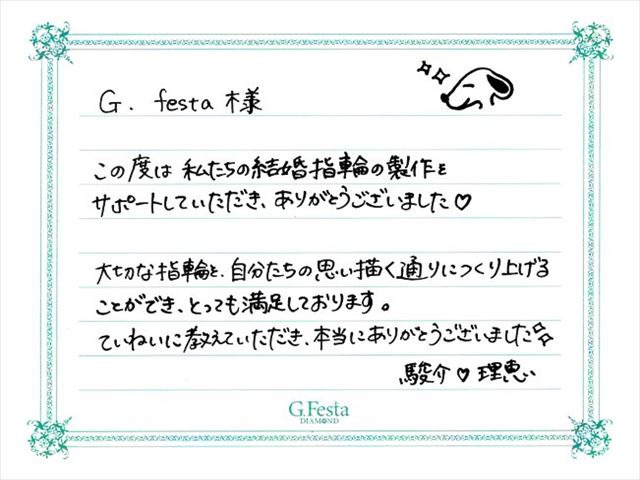 G. festa 様
この度は 私たちの結婚指輪の製作を
サポートしていただき、ありがとうございました♡
大切な指輪を、自分たちの思い描く通りにつくり上げる
ことができ、とっても満足しております。
ていねいに教えていただき、本当にありがとうございました
駿介♡理恵
G.Festa
DIAMOND